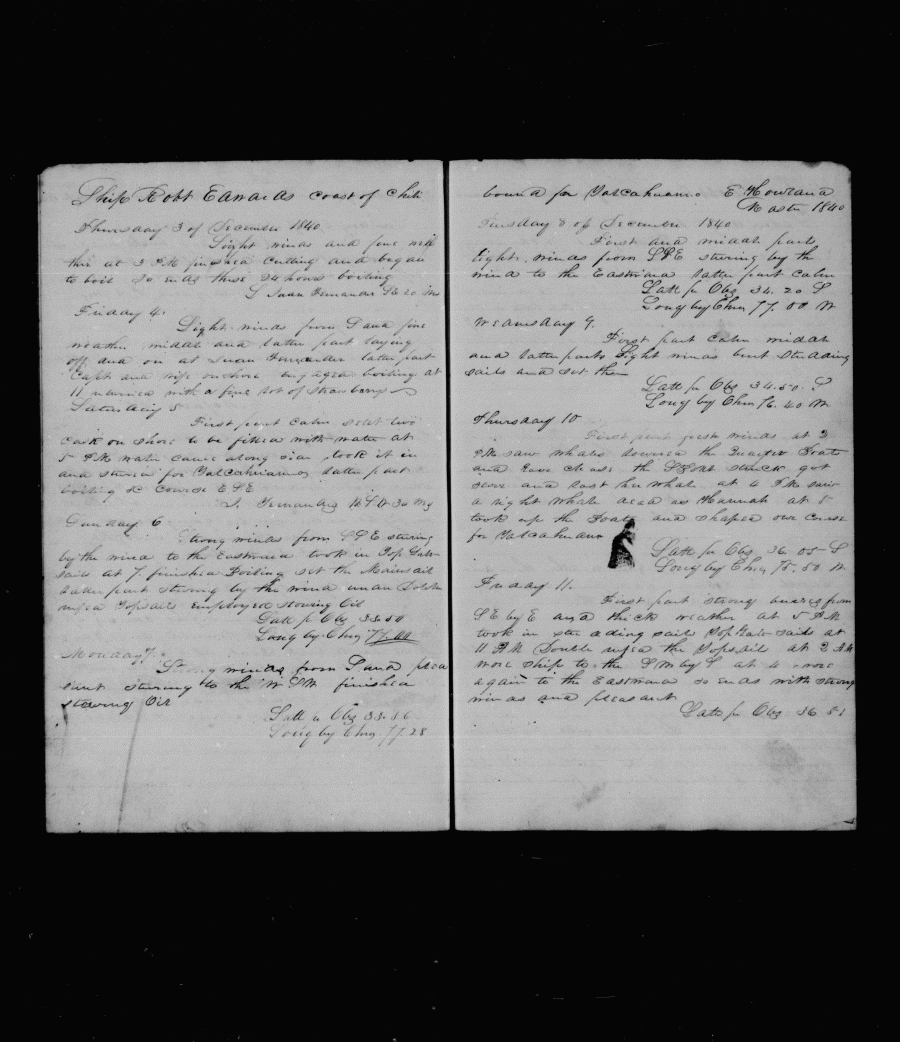 Ship Robt Edwards coast of Chili
Thursday 3 of December 1840
Light winds and fine weth
this at 3 PM finished Cutting and began
to boil So ends these 24 hours boiling
I Juan Fernandes SE 20 Ms
Friday 4
Light winds from S and fine
weather middle and latter part laying
off and on at Juan Fernander later part
Capt and wife on shore engaged boiling at
11 returned with a fine lot of
Saturday 5
First part Calm sent two
cask on shore to be filled with water at
5 PM water came along side took it in
and stered for Talcahuano latter part
boiling Course ESE
I. Fernandes 30 Ms
Sunday 6
Strong winds from SSE stering
by the wind to the Eastward took in Top Gate
sails at 7 finished Boiling set the Mainsail
latter part stering by the wind under Double
refed Topsails Employed stowing Oil
Latt pr Obs 33.50
Long by Chro 77.00
Monday 7
Strong winds from S and plea
sant stering to the WSW finished
stowing Oil
Latt pr Obs 33.56
Long by Chro 77.28
bound for Talcahuano E Howland
Master 1840
Tuesday 8 of December 1840
First and middle parts
light winds from SSE stering by the
wind to the Eastward latter part calm
Latt pr Obs 34.20 S
Long by Chro 77.00 W
Wednsday 9
First part Calm middle
and latter parts light winds bent studding
sails and set them
Latt pr Obs 34.50 S
Long by Chro 76.40 W
Thursday 10
First part fresh winds at 2
PM saw whales lowered the Quarter Boats
and Gave chase the struck got
stove and lost her whale at 4 PM saw
a right whale dead as Hannah at 5
took up the Boats and shaped our Corse
for Talcahuano
Latt pr Obs 36.05 S
Long by Chro 75.50 W
Friday 11
First part strong breezes from
SE by E and thick weather at 5 PM
took in studding sails Top Gate sails at
11 PM Double refed the Topsail at 2 AM
wore ship to the SW by S at 4 wore
again to the Eastward So ends with strong
winds and pleasant
Latt pr Obs 36 51